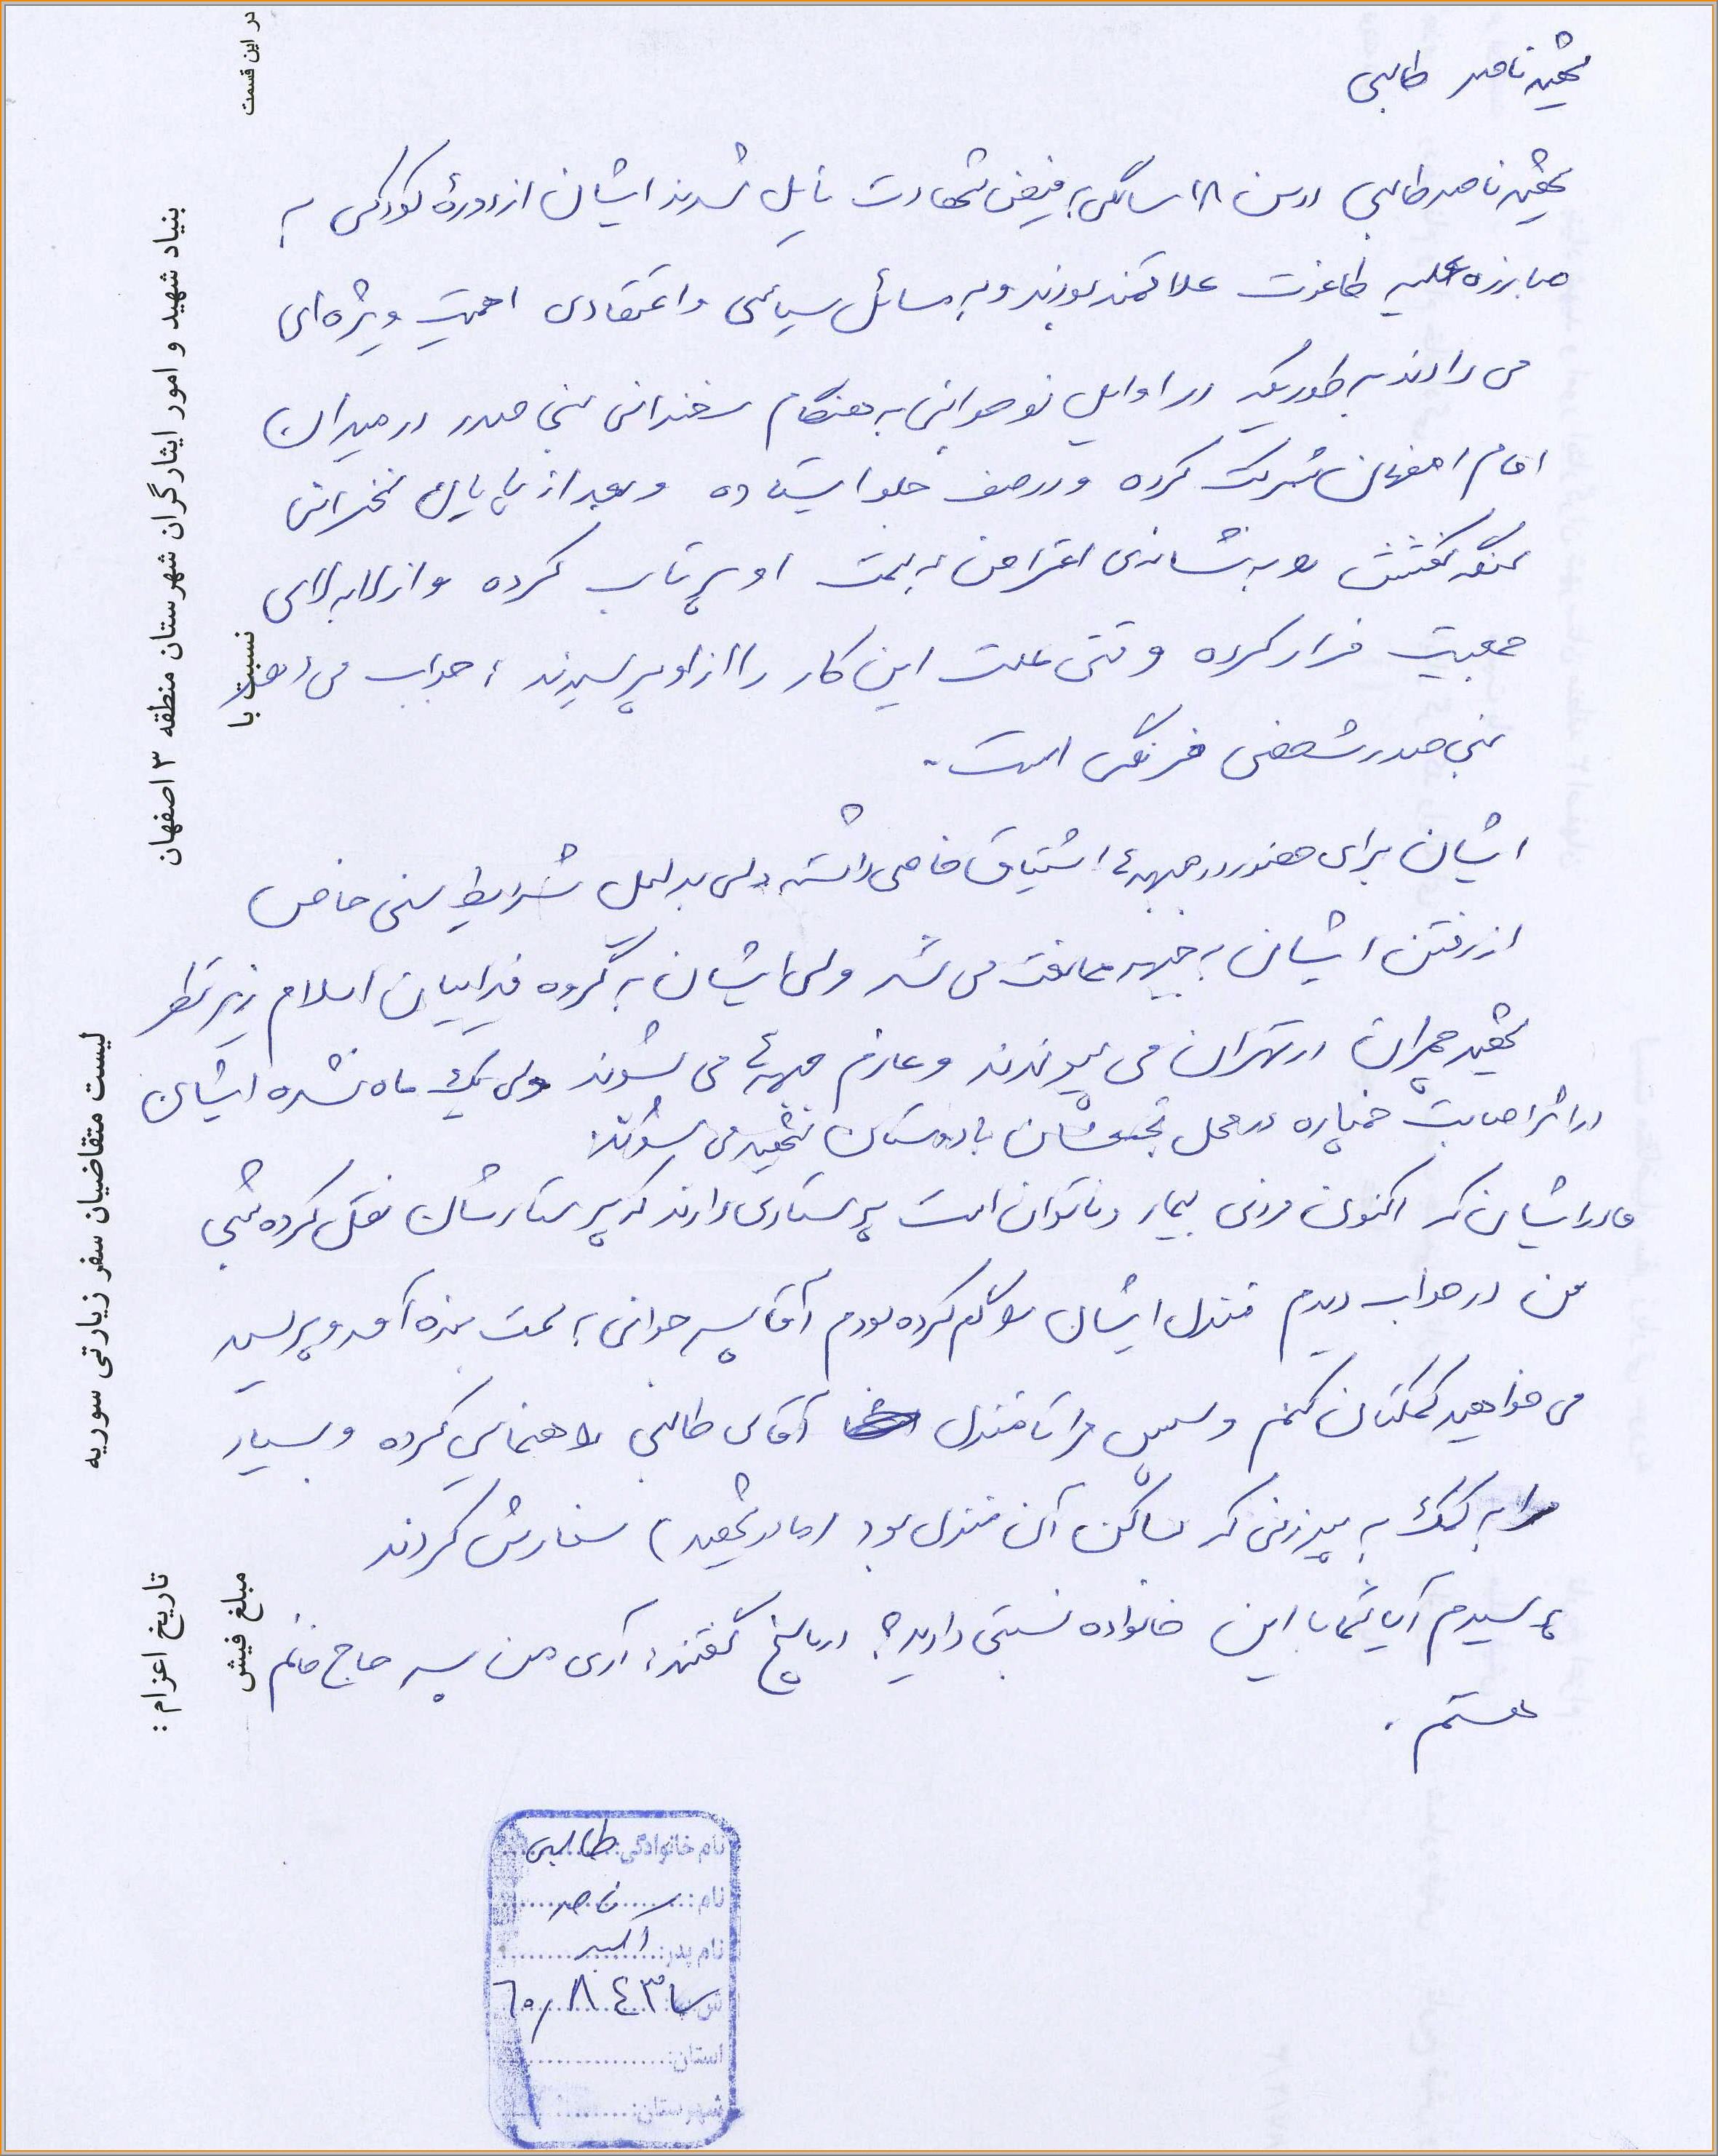 شهید ناصر طالبی
شهید ناصر طالبی در سن ۱۸ سالگی به فیض شهادت نایل شدند ایشان از دورهٔ کودکی به
مبارزه علیه طاغوت علاقمند بودند و به مسائل سیاسی و اعتقادی اهمیت ویژه‌ای
می دادند به طوریکه در اوایل نوجوانی به هنگام سخنرانی بنی صدر در میدان
امام اصفهان شرکت کرده و در صف جلو ایستاده و بعد از پایان سخنرانی
لنگه کفشش رو به نشانه‌ی اعتراض به سمت او پرتاب کرده و از لابه لای
جمعیت فرار کرده وقتی علت این کار را از او پرسیدند ، جواب می دهد
بنی صدر شخصی فرنگی است.
ایشان برای حضور در جبهه اشتیاق خاصی داشته ولی بدلیل شرایط سنی خاص
از رفتن ایشان به جبهه ممانعت می شد ولی ایشان به گروه فداییان اسلام زیر نظر
شهید چمران در تهران می پیوندند و عازم جبهه می شوند ولی یک ماه نشده ایشان
در اثر اصابت خمپاره در محل تجمعشان با دوستان شهید می شوند
مادر ایشان که اکنون فردی بیمار و ناتوان است پرستاری دارند که پرستارشان نقل کرده شبی
من در خواب دیدم منزل ایشان را گم کرده بودم آقا پسر جوانی به سمت بنده آمد و پرسید
می خواهید کمکتان کنم و سپس مرا تا منزل آقای طالبی راهنمایی کرده و بسیار
مرا به کمک به پیرزنی که ساکن آن منزل بود (مادر شهید) سفارش کردند
پرسیدم آیا شما با این خانواده نسبتی دارید؟ در پاسخ گفتند، آری من پسر حاج خانم
هستم .
نام خانوادگی: طالبی
نام: ناصر
نام پدر: اکبر
۶۰/۸۴۳
استان:
شهرستان:
در این قسمت
بنیاد شهید و امور ایثارگران شهرستان منطقه ۳ اصفهان
نسبت با
لیست متقاضیان سفر زیارتی سوریه
مبلغ فیش
تاریخ اعزام :